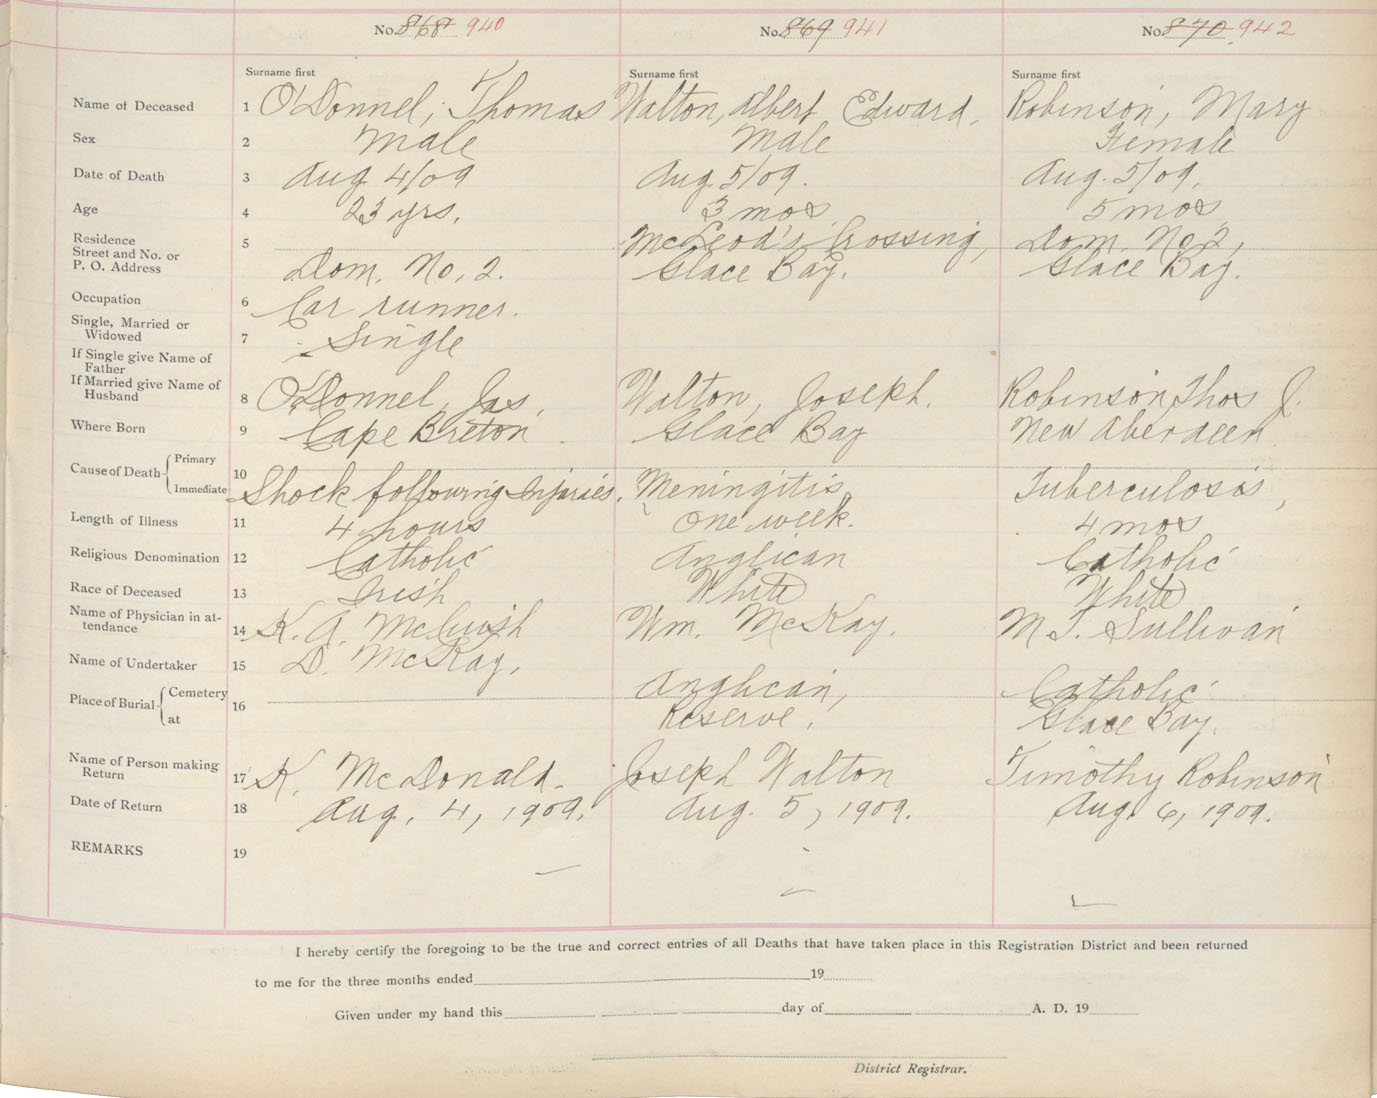 No. 868 940 No. 869 941 No. 870 942
Surname first Surname first Surname first
Name of Deceased 1 O'Donnel, Thomas Walton, Albert Edward, Robinson, Mary
Sex 2 Male Male Female
Date of Death 3 Aug. 4/09 Aug. 5/09. Aug. 5/09.
Age 4 23 yrs. 3 mos 5 mos
Residence 5 McLeod's Crossing, Dom. No 2,
Street and No. or
P. O. Address Dom. No. 2. Glace Bay. Glace Bay.
Occupation 6 Car runner.
Single, Married or
Widowed 7 Single
If Single give Name of
Father
If Married give Name of
Husband 8 O'Donnel, Jas. Walton, Joseph. Robinson Thos J.
Where Born 9 Cape Breton. Glace Bay New Aberdeen
Cause of Death Primary 10
Immediate Shock following Injuries. Meningitis, Tuberculosis,
Length of Illness 11 4 hours One week. 4 mos
Religious Denomination 12 Catholic Anglican Catholic
Race of Deceased 13 Irish White White
Name of Physician in at-
tendance 14 K. A. McCuish Wm. McKay. M. T. Sullivan
Name of Undertaker 15 D. McKay.
Place of Burial Cemetery 16 Anglican, Catholic
at Reserve. Glace Bay.
Name of Person making
Return 17 K. McDonald. Joseph Walton Timothy Robinson
Date of Return 18 Aug. 4, 1909. Aug. 5, 1909. Aug. 6, 1909.
REMARKS 19
I hereby certify the foregoing to be the true and correct entries of all Deaths that have taken place in this Registration District and been returned
to me for the three months ended 19
Given under my hand this day of A. D. 19
District Registrar.